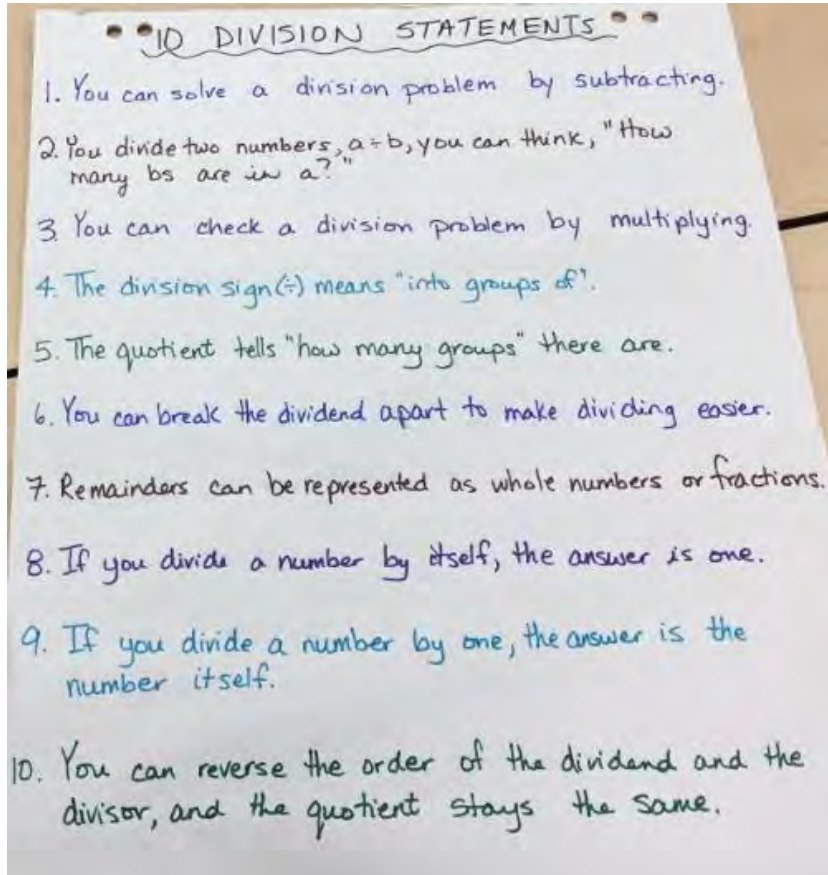 10 DIVISION STATEMENTS
1. You can solve a division problem by subtracting.
2. You divide two numbers, a÷b, you can think, "How
many bs are in a?"
3. You can check a division problem by multiplying.
4. The division sign (÷) means "into groups of".
5. The quotient tells "how many groups" there are.
6. You can break the dividend apart to make dividing easier.
7. Remainders can be represented as whole numbers or fractions.
8. If you divide a number by itself, the answer is one.
9. If you divide a number by one, the answer is the
number itself.
10. You can reverse the order of the dividend and the
divisor, and the quotient stays the same.